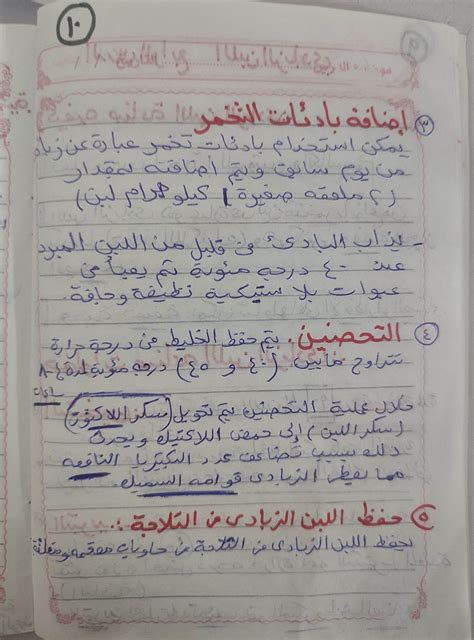 ١٠
٣ إضافة بادئات التخمر
يمكن استخدام بادئات تخمر عبارة عن زبادى
من يوم سابق ويتم اضافته بمقدار
(٢ ملعقه صغيرة / ١ كيلو جرام لبن)
- يذاب البادئ فى قليل من اللبن المبرد
عند ٤٠ درجه مئوية ثم يعبأ فى
عبوات بلاستيكية نظيفة وجافة.
٤ التحضين. يتم حفظ الخليط فى درجة حرارة
تتراوح مابين (٤٠ و ٤٥) درجه مئوية لمدة ٤-٨
ساعات
خلال عملية التحضين يتم تحويل (سكر اللاكتوز)
(سكر اللبن) إلى حمض اللاكتيك ويحدث
ذلك بسبب تضاعف عدد البكتيريا النافعه
مما يعطى الزبادى قوامه السميك.
٥ حفظ اللبن الزبادى فى الثلاجة :.
يحفظ اللبن الزبادى فى الثلاجة فى حاويات معقمه ومغلقة